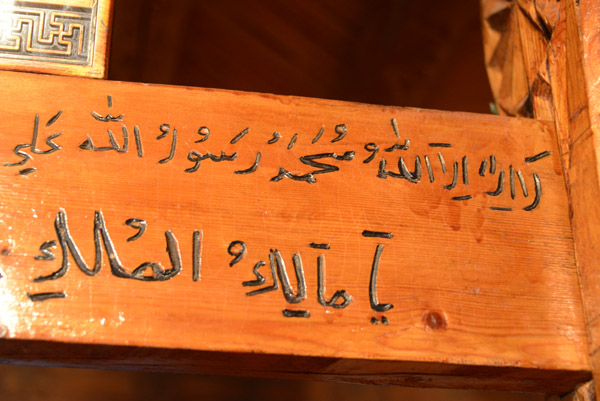 لَا اِلٰهَ اِلَّا اللّٰهُ مُحَمَّدٌ رَسُولُ اللّٰه عَلِي
يَا مَالِكُ المُلكِ